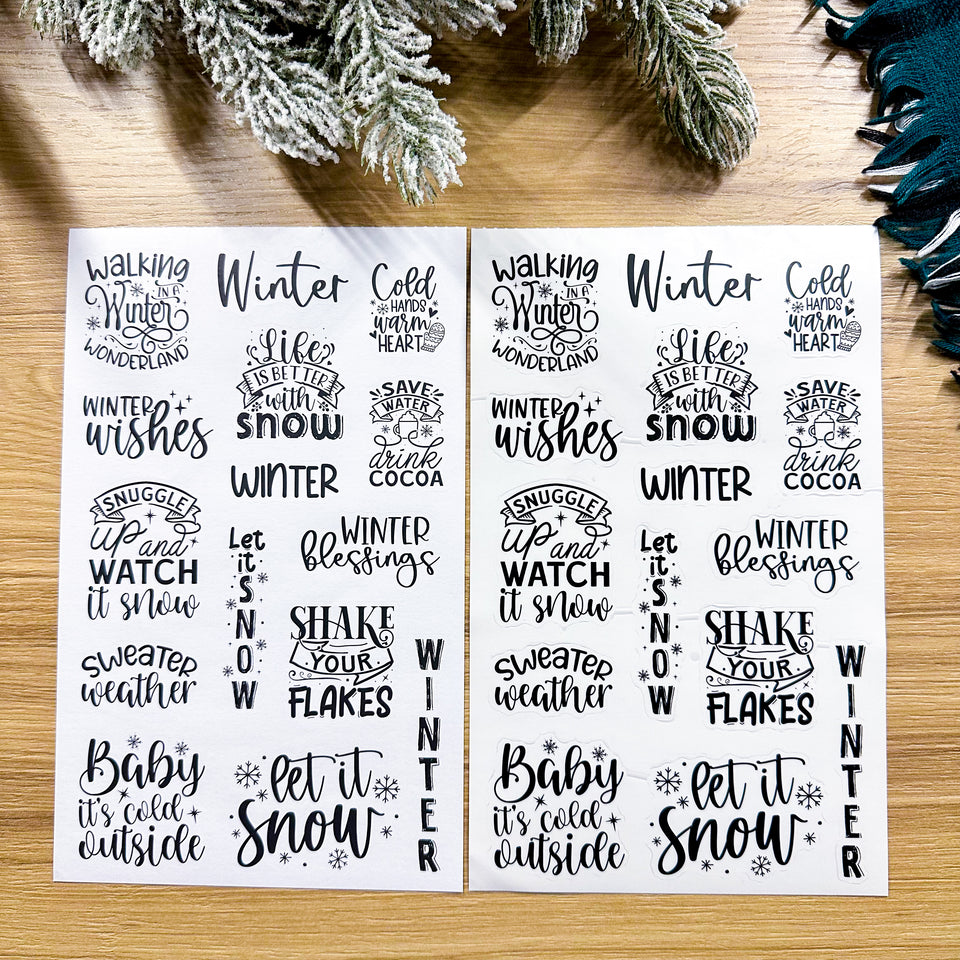 Walking
IN A
Winter
WONDERLAND
Winter
Cold
HANDS
warm
HEART
Life
IS BETTER
with
SNOW
WINTER
wishes
SAVE
WATER
drink
COCOA
WINTER
SNUGGLE
UP and
WATCH
it snow
Let
it
S
N
O
W
WINTER
blessings
SHAKE
YOUR
FLAKES
SWEATER
weather
W
I
N
T
E
R
Baby
it's cold
outside
let it
Snow
Walking
IN A
Winter
WONDERLAND
Winter
Cold
HANDS
warm
HEART
Life
IS BETTER
with
SNOW
WINTER
wishes
SAVE
WATER
drink
COCOA
WINTER
SNUGGLE
UP and
WATCH
it snow
Let
it
S
N
O
W
WINTER
blessings
SHAKE
YOUR
FLAKES
SWEATER
weather
W
I
N
T
E
R
Baby
it's cold
outside
let it
Snow